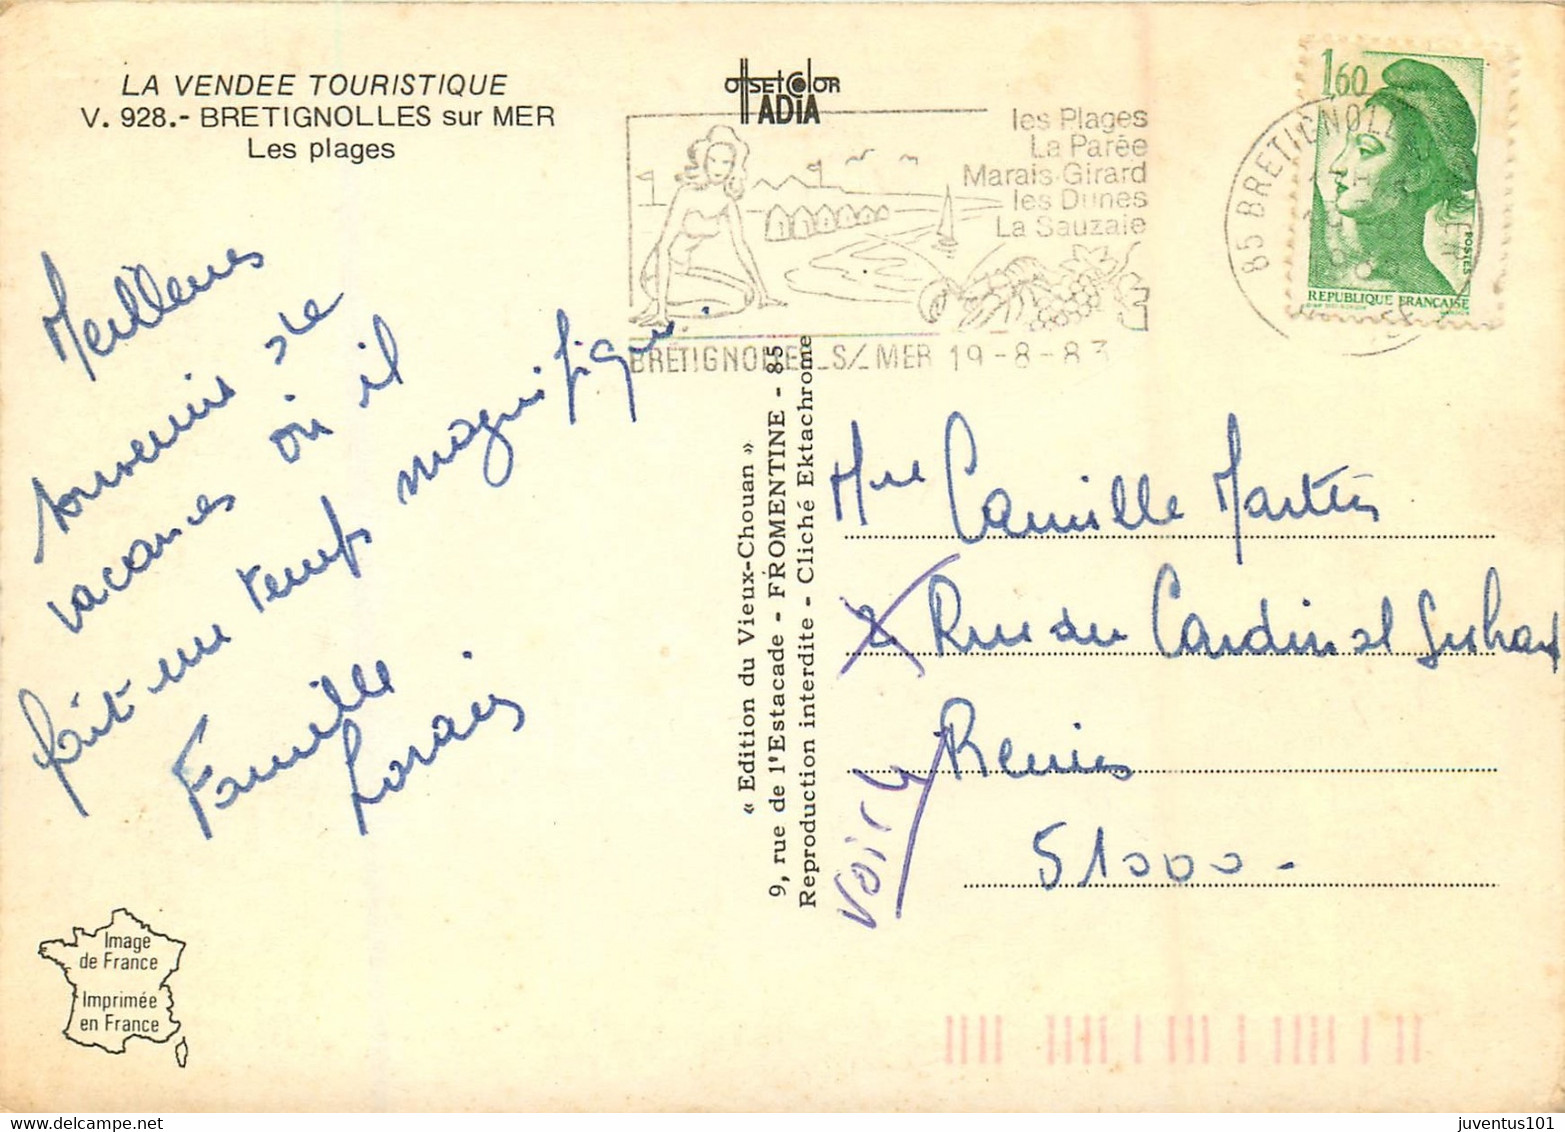 LA VENDEE TOURISTIQUE
V. 928.- BRETIGNOLLES sur MER
Les plages
OffSET COLOR
ADIA
les Plages
La Parée
Marais-Girard
les Dunes
La Sauzaie
BRETIGNOLLES S/ MER 19-8-83
1,60
POSTES
REPUBLIQUE FRANCAISE
85 BRETIGNOLLES
Meilleurs
souvenirs de
vacances où il
fait un temps magnifique.
Famille
« Edition du Vieux-Chouan »
9, rue de l'Estacade - FROMENTINE - 85
Reproduction interdite - Cliché Ektachrome
Mme Camille Martin
2 Rue du Cardinal
Reims
51000-
voir
Image
de France
Imprimée
en France
juventus101